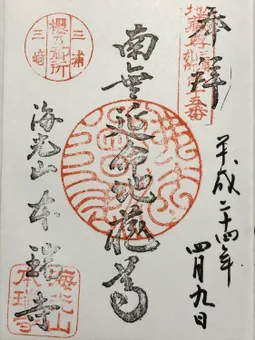 奉拝
平成二十四年四月九日
南無延命地蔵尊
三浦
櫻の御所
三崎
海光山本瑞寺
海光山
本瑞寺